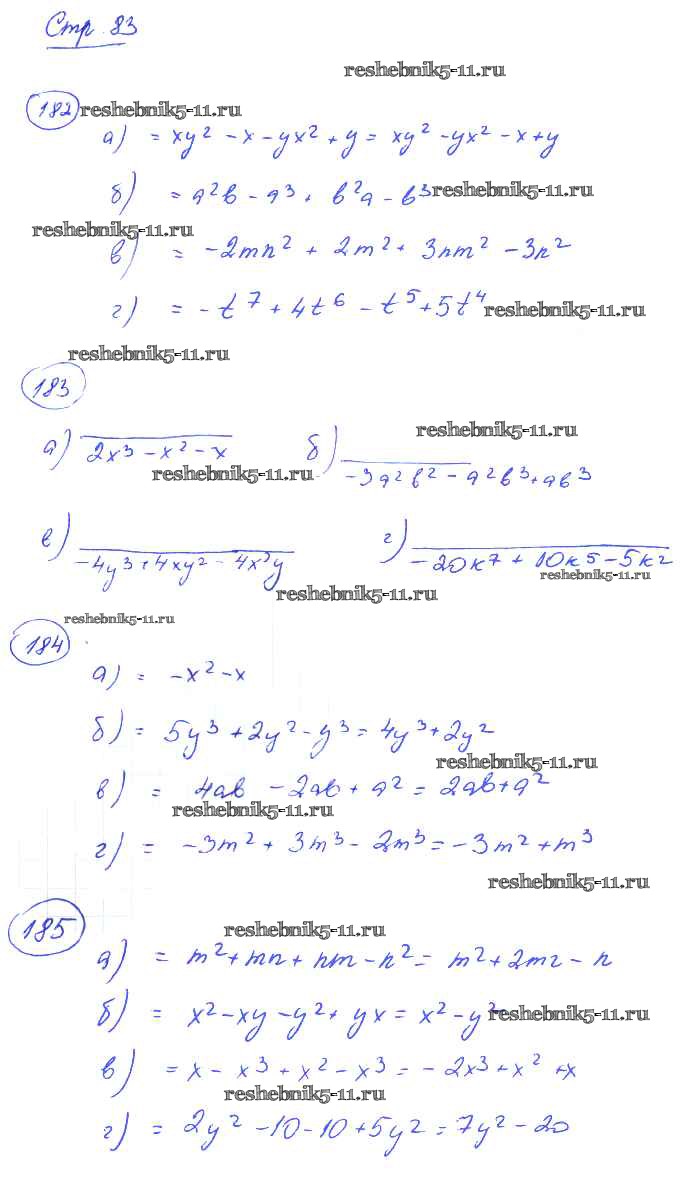 Стр. 83
reshebnik5-11.ru
182 reshebnik5-11.ru
а) = xy² - x - yx² + y = xy² - yx² - x + y
б) = a²b - a³ + b²a - b³ reshebnik5-11.ru
reshebnik5-11.ru
в) = -2mn² + 2m² + 3nm² - 3n²
г) = -t⁷ + 4t⁶ - t⁵ + 5t⁴ reshebnik5-11.ru
reshebnik5-11.ru
183
reshebnik5-11.ru
а) 2x³ - x² - x б) -3a²b² - a²b³ + ab³
reshebnik5-11.ru
в) -4y³ + 4xy² - 4x²y г) -20k⁷ + 10k⁵ - 5k²
reshebnik5-11.ru
reshebnik5-11.ru
reshebnik5-11.ru
184
а) = -x² - x
б) = 5y³ + 2y² - y³ = 4y³ + 2y²
reshebnik5-11.ru
в) = 4ab - 2ab + a² = 2ab + a²
reshebnik5-11.ru
г) = -3m² + 3m³ - 2m³ = -3m² + m³
reshebnik5-11.ru
185
reshebnik5-11.ru
а) = m² + mn + nm - n² = m² + 2mn - n
б) = x² - xy - y² + yx = x² - y² reshebnik5-11.ru
в) = x - x³ + x² - x³ = -2x³ + x² + x
reshebnik5-11.ru
г) = 2y² - 10 - 10 + 5y² = 7y² - 20